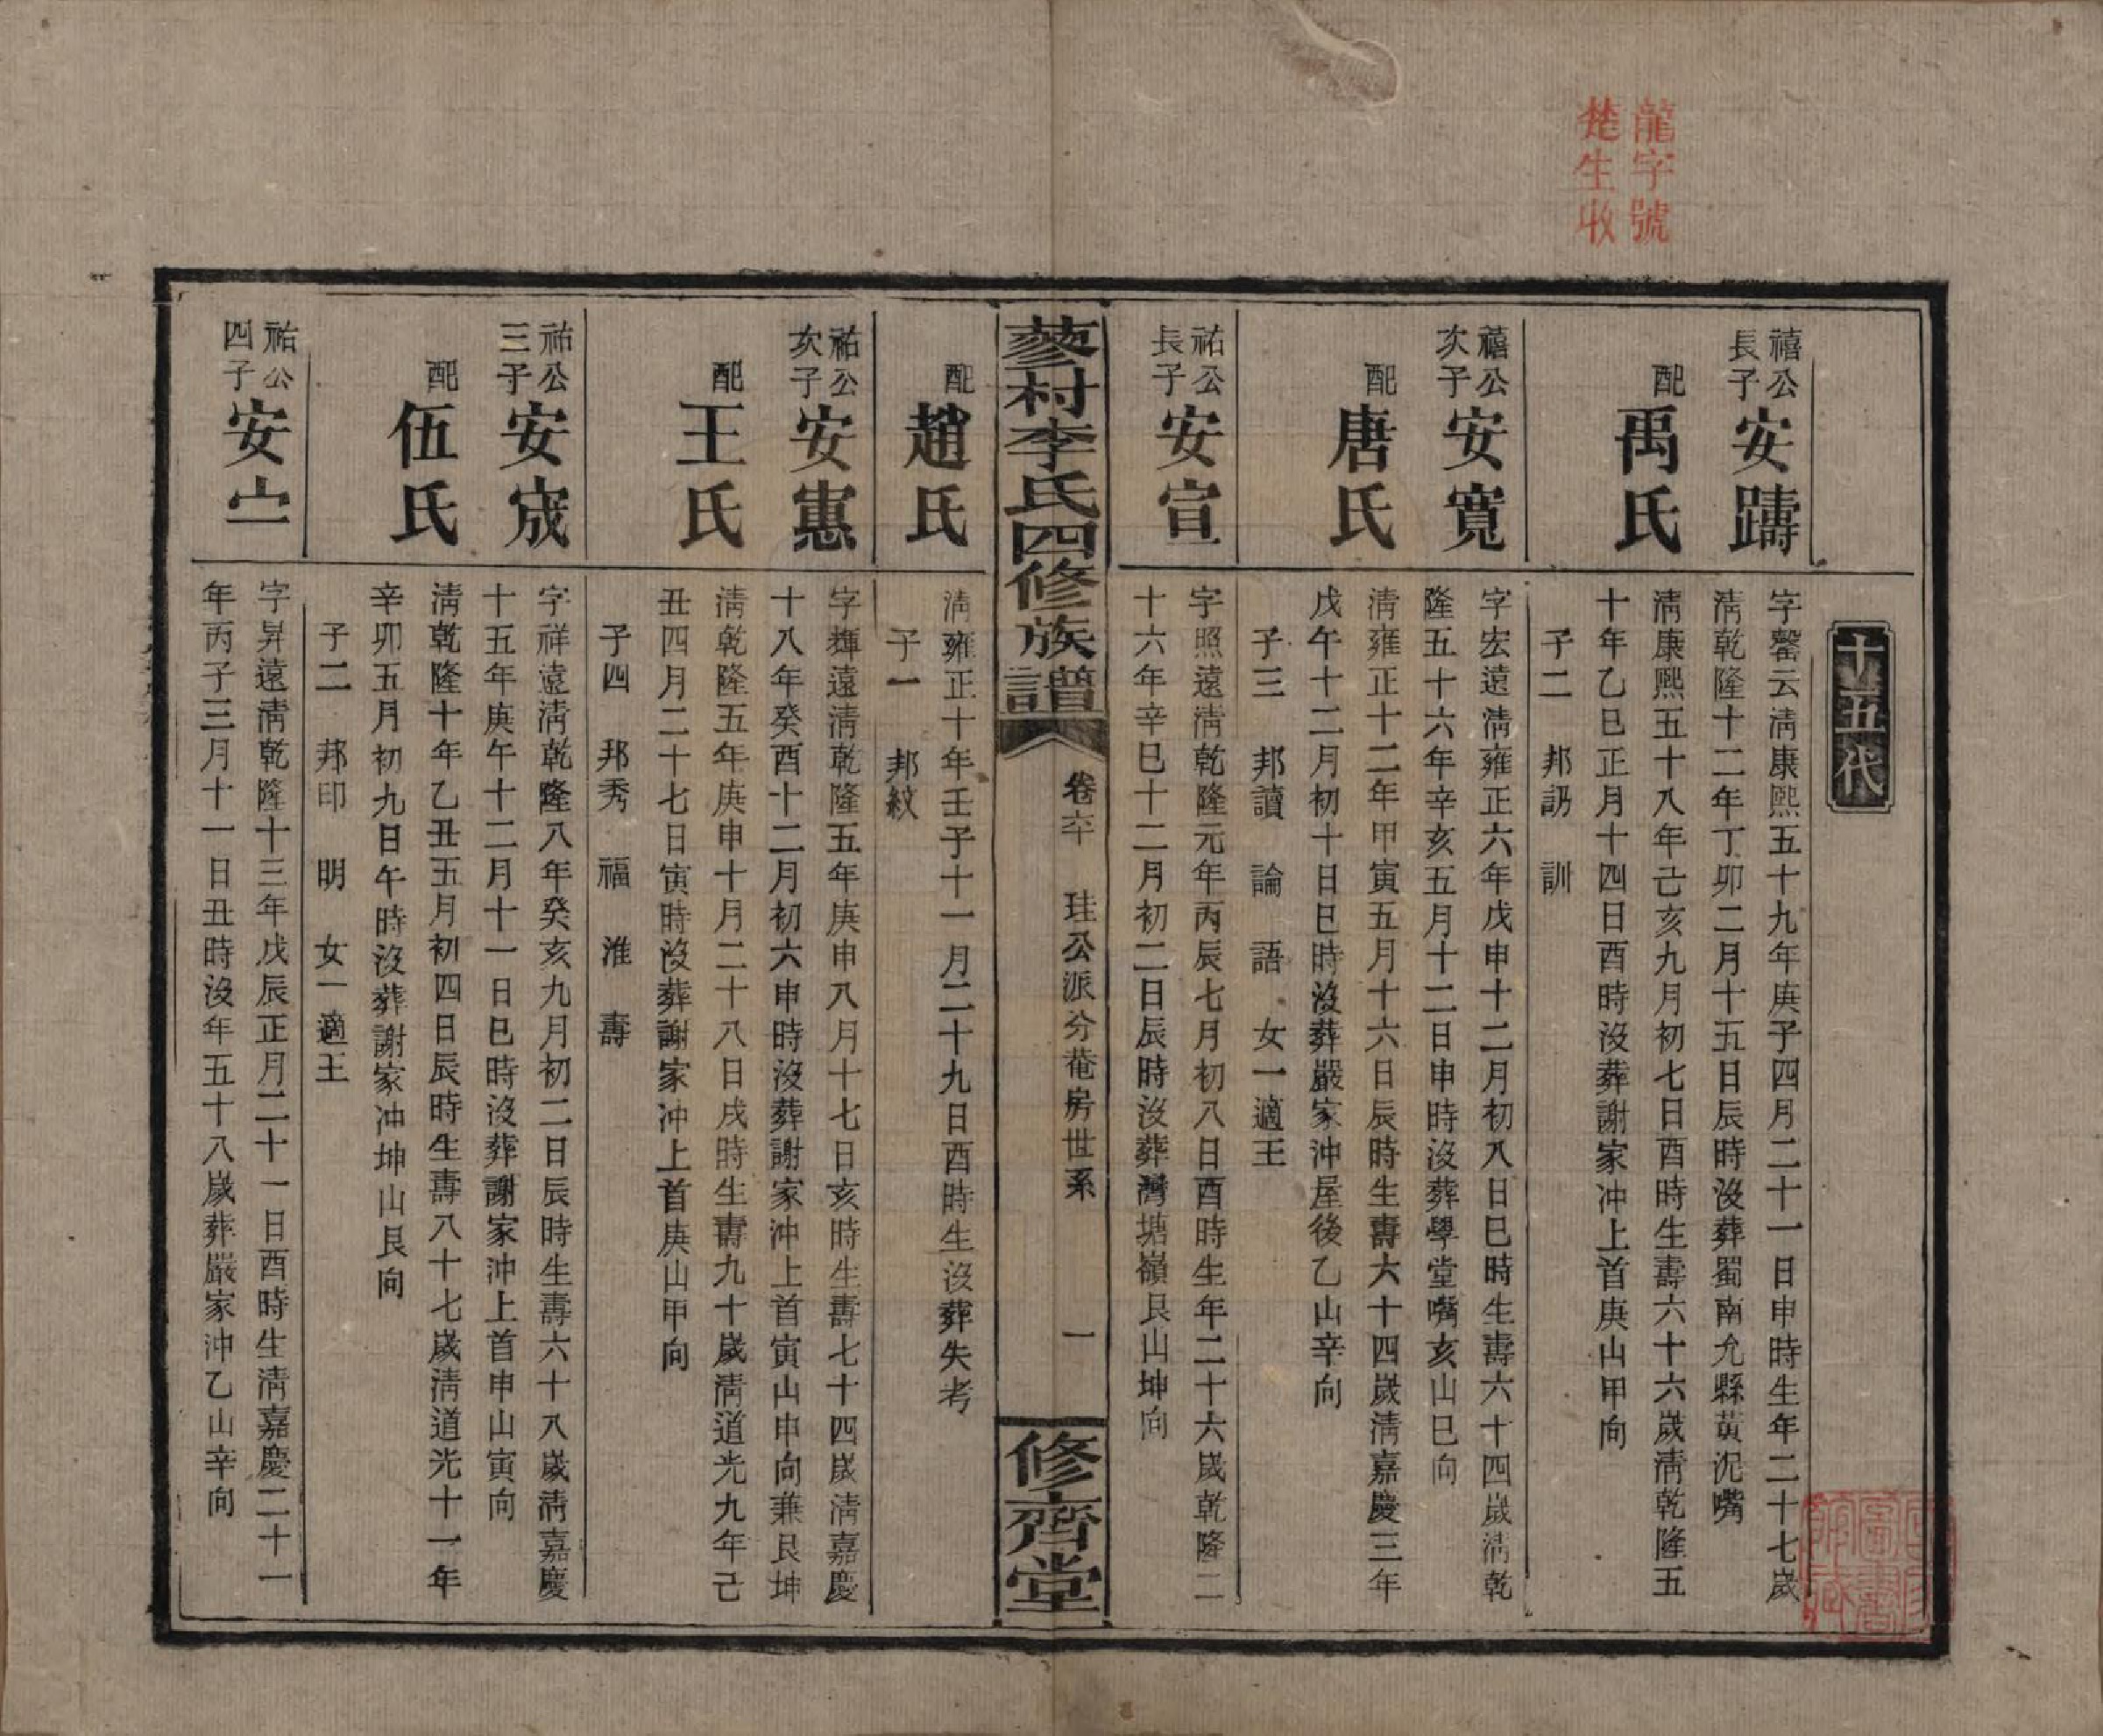 龍字號
楚生收
十五代
禧公
長子
安躊
字罄云淸康熙五十九年庚子四月二十一日申時生年二十七歲
淸乾隆十二年丁卯二月十五日辰時沒葬蜀南允縣黃泥嘴
配
禹氏
淸康熙五十八年己亥九月初七日酉時生壽六十六歲淸乾隆五
十年乙巳正月十四日酉時沒葬謝家冲上首庚山甲向
子二 邦訒 訓
禧公
次子
安寬
字宏遠淸雍正六年戊申十二月初八日巳時生壽六十四歲淸乾
隆五十六年辛亥五月十二日申時沒葬學堂嘴亥山巳向
配
唐氏
淸雍正十二年甲寅五月十六日辰時生壽六十四歲淸嘉慶三年
戊午十二月初十日巳時沒葬嚴家冲屋後乙山辛向
子三 邦讀 論 語 女一適王
祐公
長子
安宣
字照遠淸乾隆元年丙辰七月初八日酉時生年二十六歲乾隆二
十六年辛巳十二月初二日辰時沒葬灣塘嶺艮山坤向
蓼村李氏四修族譜
卷六 珪公派分菴房世系
一
修齊堂
配
趙氏
淸雍正十年壬子十一月二十九日酉時生沒葬失考
子一 邦紋
祐公
次子
安惠
字輝遠淸乾隆五年庚申八月十七日亥時生壽七十四歲淸嘉慶
十八年癸酉十二月初六申時沒葬謝家冲上首寅山申向兼艮坤
配
王氏
淸乾隆五年庚申十月二十八日戌時生壽九十歲淸道光九年己
丑四月二十七日寅時沒葬謝家冲上首庚山甲向
子四 邦秀 福 淮 壽
祐公
三子
安宬
字祥遠淸乾隆八年癸亥九月初二日辰時生壽六十八歲淸嘉慶
十五年庚午十二月十一日巳時沒葬謝家冲上首申山寅向
配
伍氏
淸乾隆十年乙丑五月初四日辰時生壽八十七歲淸道光十一年
辛卯五月初九日午時沒葬謝家冲坤山艮向
子二 邦印 明 女一適王
祐公
四子
安宀
字昇遠淸乾隆十三年戊辰正月二十一日酉時生淸嘉慶二十一
年丙子三月十一日丑時沒年五十八歲葬嚴家冲乙山辛向